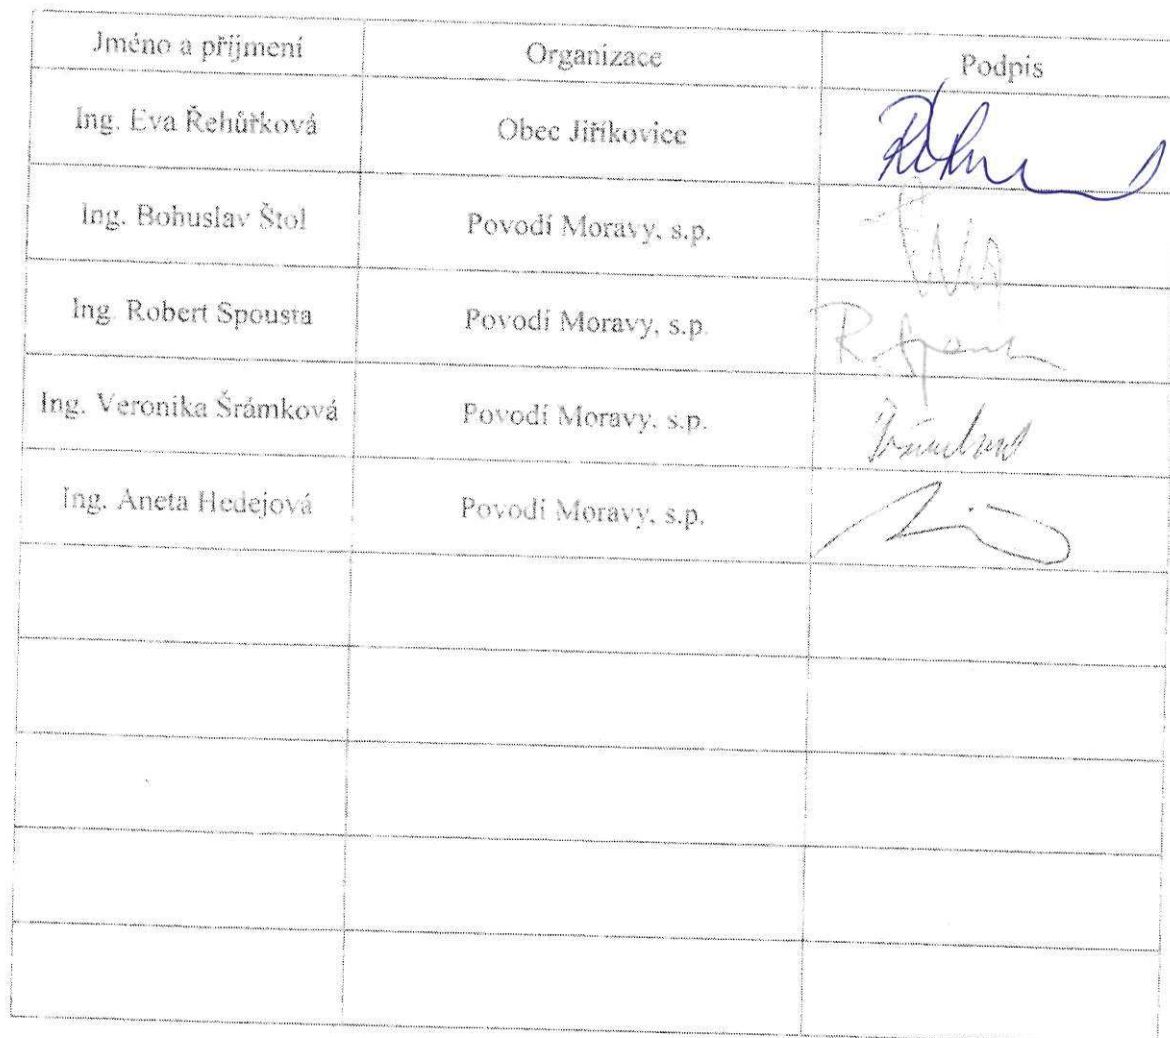 Jméno a příjmení Organizace Podpis
Ing. Eva Řehůřková Obec Jiříkovice
Ing. Bohuslav Štol Povodí Moravy, s.p.
Ing. Robert Spousta Povodí Moravy, s.p.
Ing. Veronika Šrámková Povodí Moravy, s.p.
Ing. Aneta Hedejová Povodí Moravy, s.p.